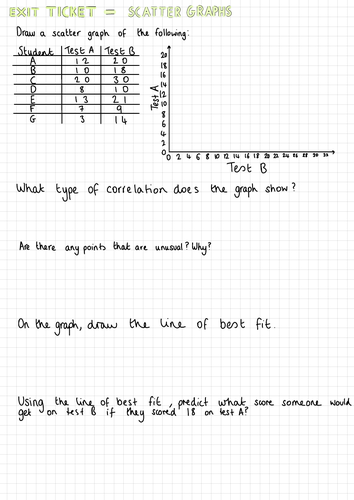 EXIT TICKET = SCATTER GRAPHS
Draw a scatter graph of the following:
Student Test A Test B
A 12 20
B 10 18
C 20 30
D 8 10
E 13 21
F 7 9
G 3 14
20
18
16
14
12
10
8
6
4
2
0
Test A
0 2 4 6 8 10 12 14 16 18 20 22 24 26 28 30
Test B
What type of correlation does the graph show?
Are there any points that are unusual? Why?
On the graph, draw the line of best fit.
Using the line of best fit, predict what score someone would
get on test B if they scored 18 on test A?